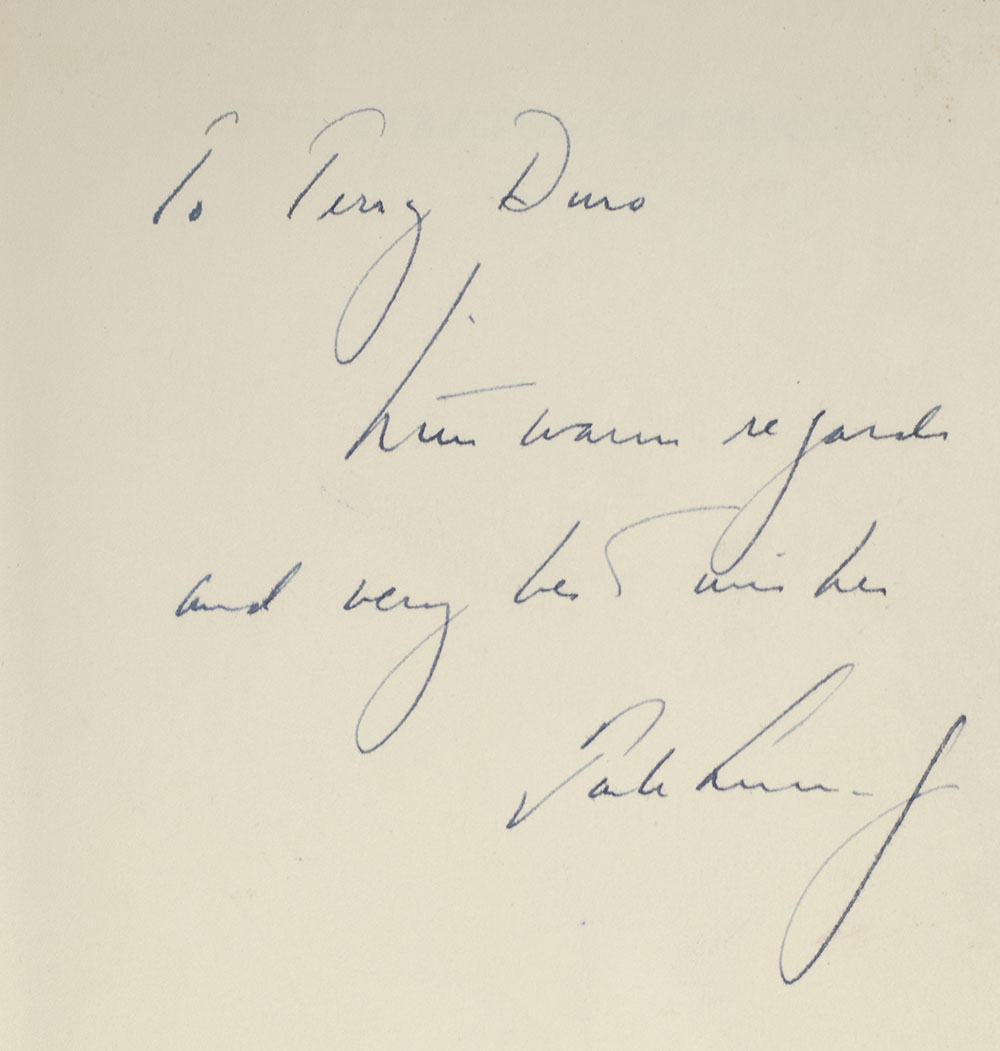 To Terry Duro
With warm regards
and very best wishes
Jack